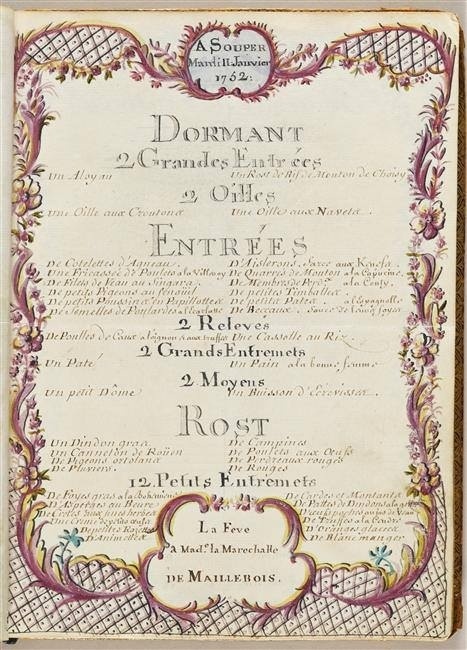 A SOUPER
Mardi 11 Janvier
1752:
DORMANT
2 Grandes Entrées
Un Aloyau
Un Rost de Bif de Mouton de Choisy
2 Oilles
Une Oille aux Croutons
Une Oille aux Navets
ENTRÉES
De Cotelettes d'Agneau
D'Aislerons
Une Fricassée de Poulets a la Villeroy
De Quarrés de Mouton
De Filets de Veau au Singara
De Membres de Perd.x a la Conty
De petits Pigeons au
De petites Timballes
De petits Poussins en Papillottes
De petits Patés a l'espagnolle
De Semelles de Poulardes a l'ecarlatte
De Beccaux
2 Releves
De Poulles de Caux a l'oignon & aux truffes
Une Cassolle au Riz
2 Grands Entremets
Un Paté
Un Pain a la bonne femme
2 Moyens
Un petit Dôme
Un Buisson d'Ecrevisses
ROST
Un Dindon gras
De Campines
Un Canneton de Roüen
De Poulets aux Oeufs
De Pigeons ortolans
De Perdreaux rouges
De Pluviers
De Rouges
12 Petits Entremets
De Foyes gras a la
De Cardes et Montants
D'Asperges au Beure
De Pattes de Dindons
De Cretes aux fines herbes
D'ecrevisses
Une Creme
De Truffes a la Cendre
D'Oranges glacées
D'Animelles
De Blanc manger
La Feve
A Mad.e la Marechalle
DE MAILLEBOIS.